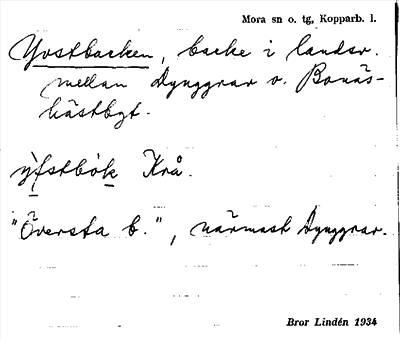 Mora sn o. tg, Kopparb. l.
Yvstbacken, backe i landsv.
mellan Dynggrav o. Bonäs-
hästbyt.
ỳ̱fstbök Krå.
"Översta b.", närmast Dynggrav.
Bror Lindén 1934